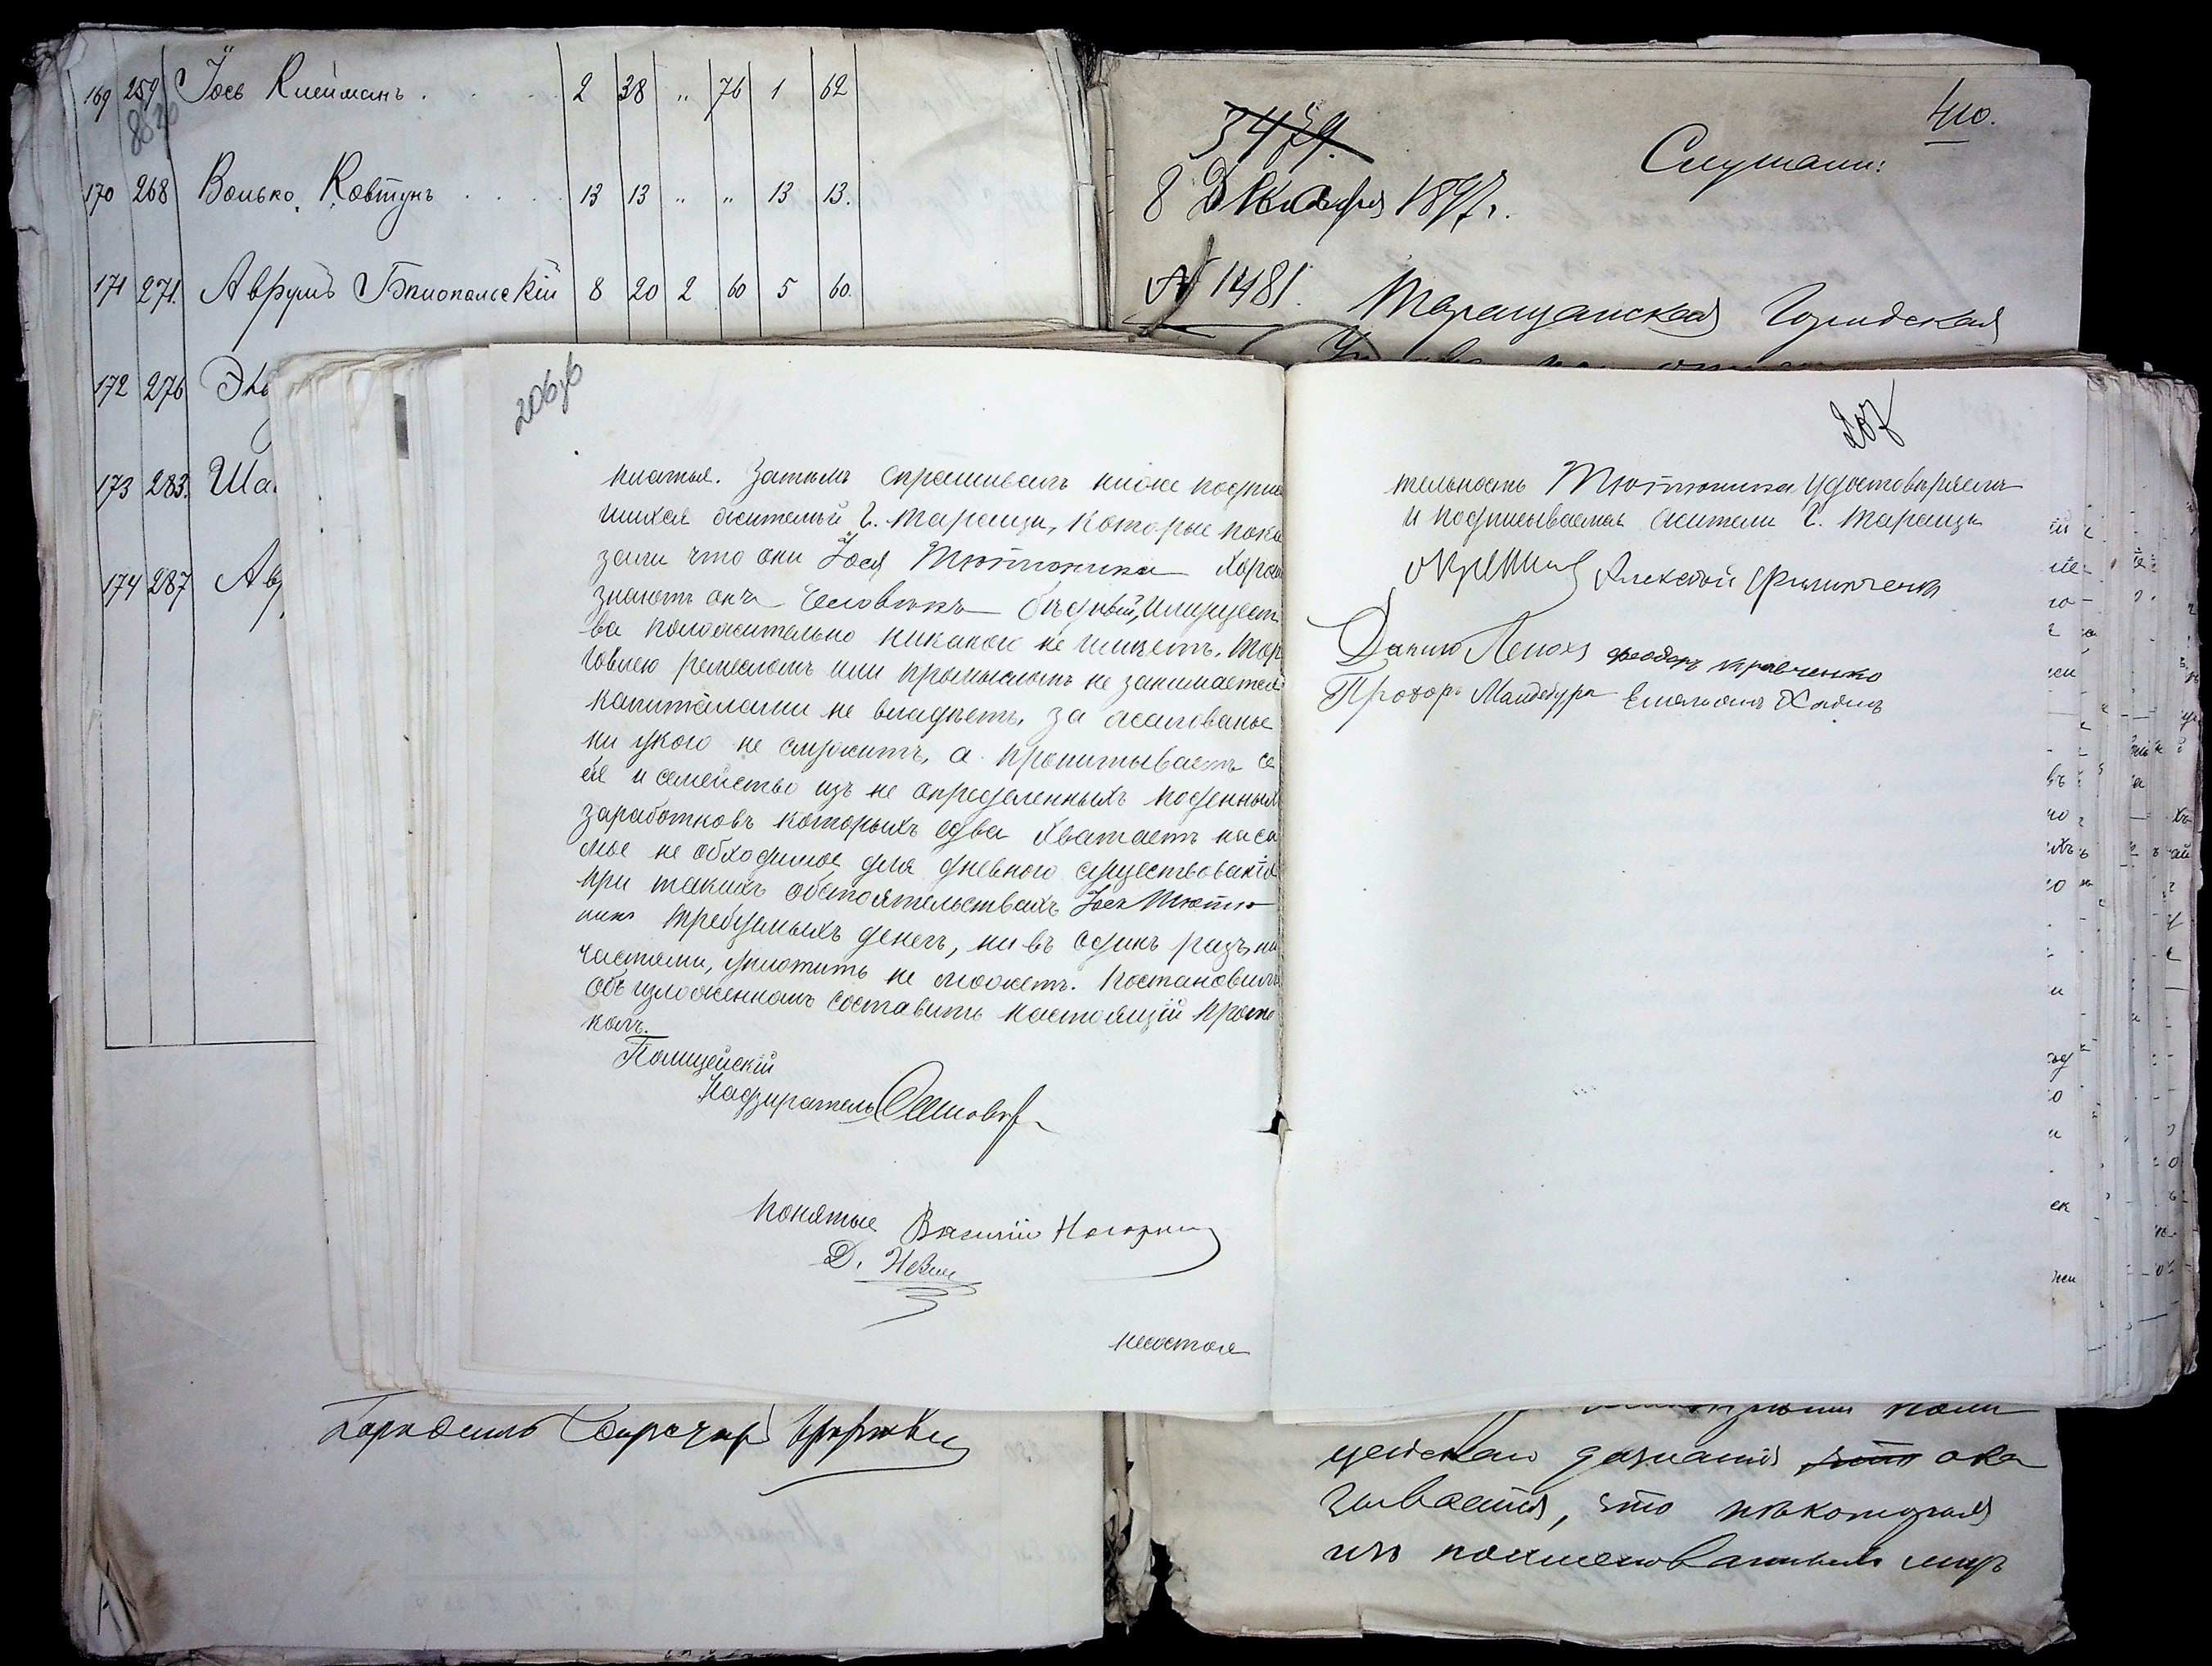 169 259 Іось Клейманъ . . . 2 38 „ 76 1 62
170 268 Волько Ковтунъ . . . 13 13 „ „ 13 13.
171 271. Аврумъ Бѣлопольскій 8 20 2 60 5 60.
172 276
173 283.
174 287
410.
Слушали:
8 Декабря 1897 г.
№ 1481. Таращанская Городская
206 об
платья. Затѣмъ спрашивалъ ниже подпи
шихся жителей г. Таращи, которые пока
зали что они Іося Тютюника хорош
знаютъ онъ человѣкъ бѣдный, имущест
ва положительно никакой не имѣетъ, тор
говлею ремесломъ или промысломъ не занимается
капиталами не владѣетъ, за жалованье
ни укого не служитъ, а пропитываетъ се
бя и семейство изъ не определенныхъ поденныхъ
заработковъ которыхъ едва хватаетъ на са
мые не обходимое для дневного существованія
при такихъ обстоятельствахъ Іось Тютю
никъ требуемыхъ денегъ, ни въ одинъ разъ, ни
частями, уплотить не можетъ. Постановилъ
Объ изложенномъ составить настоящій прото
колъ.
Полицейскій
Надзиратель
Понятые Василій
Д.
несостоя
207
тельность Тютюника удостовѣряемъ
и подписываемся жители г. Таращи
Алексѣй Филипченко
Данило Ѳеодоръ Кравченко
Прохоръ Мандебура Емельянъ
цейскаго дознанія ока
зывается, что нѣкоторыя
изъ поименованныхъ лицъ